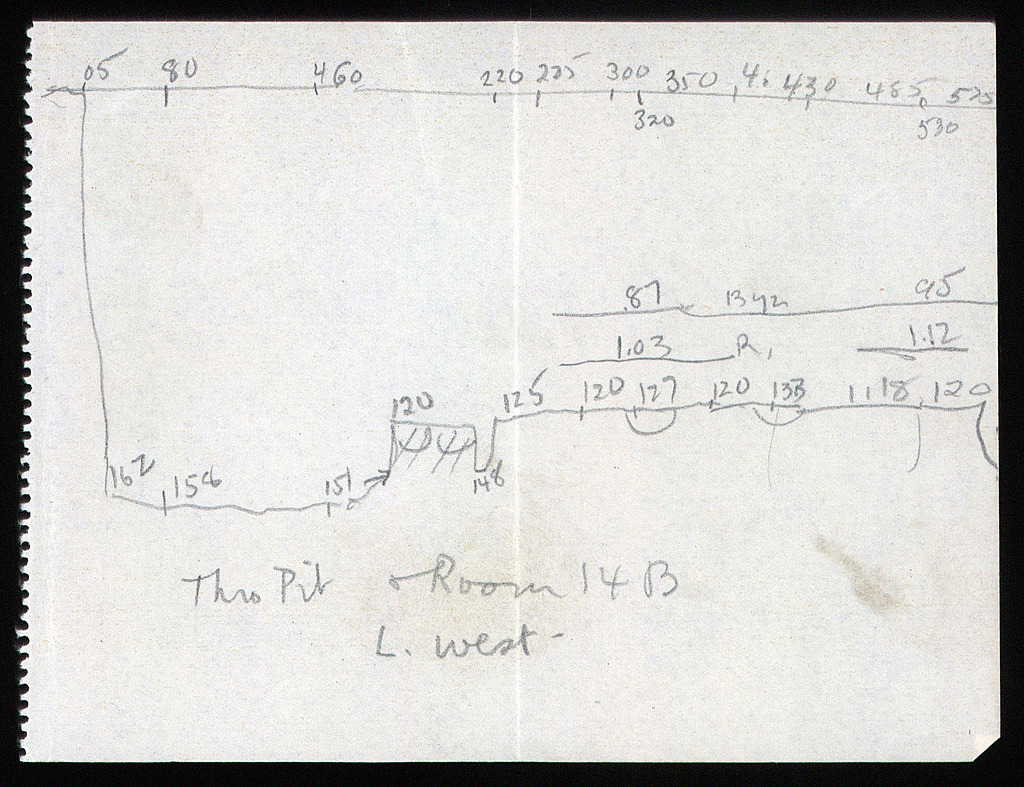 05 80 460 220 225 300 350 430 485 525
320 530
.87 95
1.03 R, 1.12
120 125 120 127 120 133 1.18 120
162 158 151 148
Thro Pit & Room 14 B
L. west -